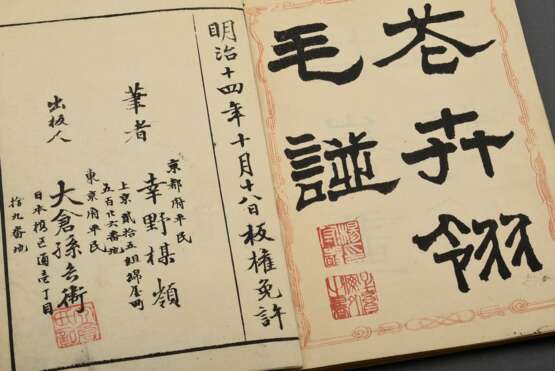 花卉翎
毛譜
明治十四年十月十八日板權免許
京都府平民
筆者 幸野楳嶺
上京貳拾五組錦屋町
五百廿六番地
東京府平民
出板人 大倉孫兵衛
日本橋區通壱丁目
拾九番地